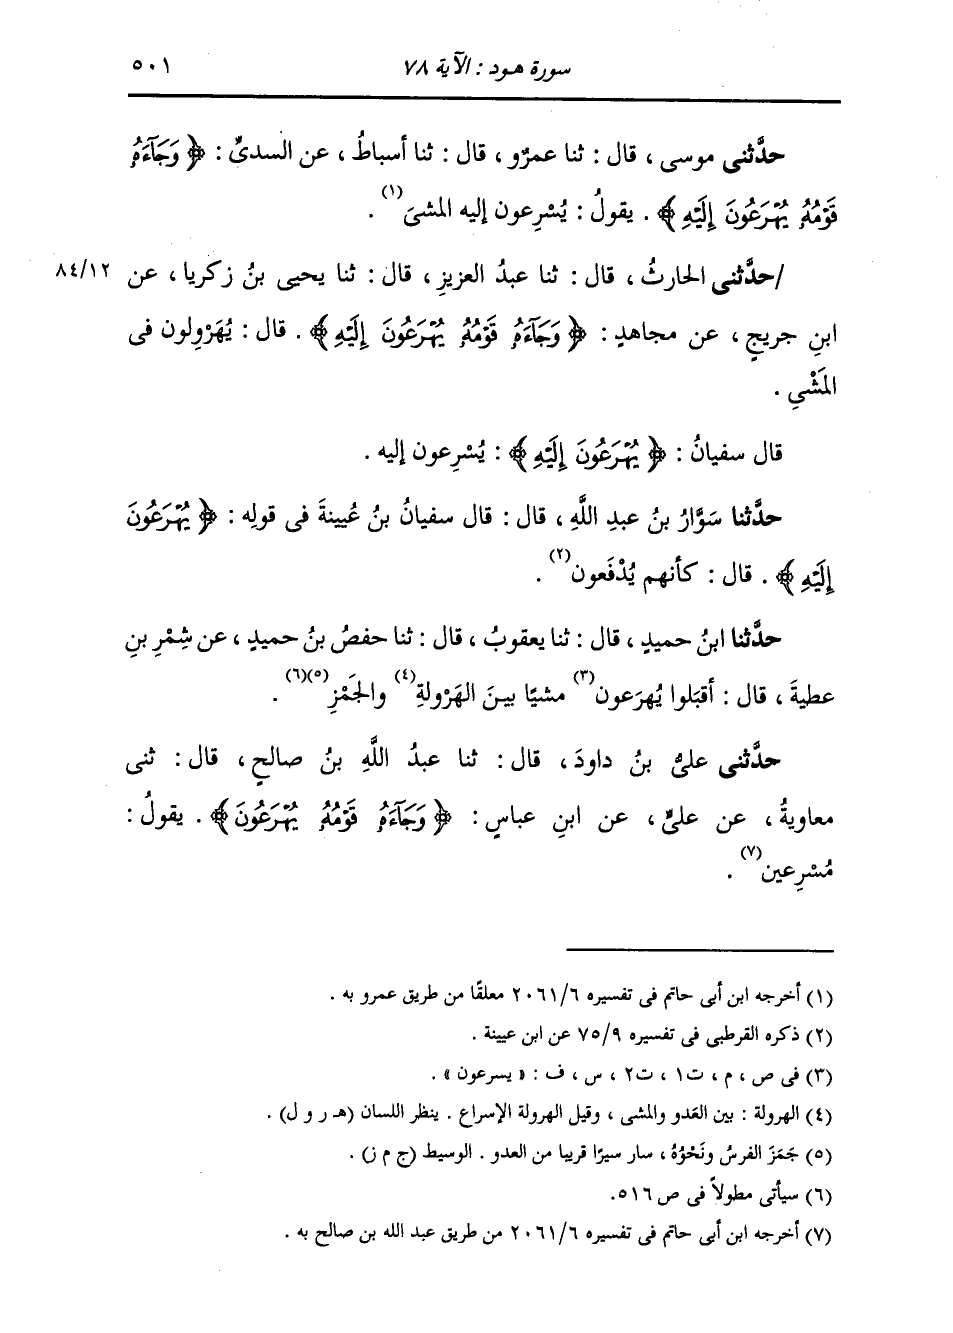 سورة هود : الآية ٧٨
٥٠١
حدَّثنى موسى ، قال : ثنا عمرٌو ، قال : ثنا أسباطُ ، عن السدىِّ : ﴿ وَجَآءَهُۥ
قَوْمُهُۥ يُهْرَعُونَ إِلَيْهِ ﴾ . يقولُ : يُسْرِعون إليه المشىَ(١) .
/حدَّثنى الحارثُ ، قال : ثنا عبدُ العزيزِ ، قال : ثنا يحيى بنُ زكريا ، عن ٨٤/١٢
ابنِ جريجٍ ، عن مجاهدٍ : ﴿ وَجَآءَهُۥ قَوْمُهُۥ يُهْرَعُونَ إِلَيْهِ ﴾ . قال : يُهَرْوِلون فى
المَشْىِ .
قال سفيانُ : ﴿ يُهْرَعُونَ إِلَيْهِ ﴾ : يُسْرِعون إليه .
حدَّثنا سَوَّارُ بنُ عبدِ اللَّهِ ، قال : قال سفيانُ بنُ عُيينةَ فى قولِه : ﴿ يُهْرَعُونَ
إِلَيْهِ ﴾ . قال : كأنهم يُدْفَعون(٢) .
حدَّثنا ابنُ حميدٍ ، قال : ثنا يعقوبُ ، قال : ثنا حفصُ بنُ حميدٍ ، عن شِمْرِ بنِ
عطيةَ ، قال : أقبَلوا يُهرَعون(٣) مشيًا بينَ الهَرْولةِ(٤) والجَمْزِ(٥)(٦) .
حدَّثنى علىُّ بنُ داودَ ، قال : ثنا عبدُ اللَّهِ بنُ صالحٍ ، قال : ثنى
معاويةُ ، عن علىٍّ ، عن ابنِ عباسٍ : ﴿ وَجَآءَهُۥ قَوْمُهُۥ يُهْرَعُونَ ﴾ . يقولُ :
مُسْرِعين(٧) .
(١) أخرجه ابن أبى حاتم فى تفسيره ٢٠٦١/٦ معلقًا من طريق عمرو به .
(٢) ذكره القرطبى فى تفسيره ٧٥/٩ عن ابن عيينة .
(٣) فى ص ، م ، ت١ ، ت٢ ، س ، ف : « يسرعون » .
(٤) الهرولة : بين العَدو والمشى ، وقيل الهرولة الإسراع . ينظر اللسان (هـ ر و ل) .
(٥) جَمَزَ الفرسُ ونَحْوُهُ ، سار سيرًا قريبا من العدو . الوسيط (ج م ز) .
(٦) سيأتى مطولاً فى ص ٥١٦.
(٧) أخرجه ابن أبى حاتم فى تفسيره ٢٠٦١/٦ من طريق عبد الله بن صالح به .